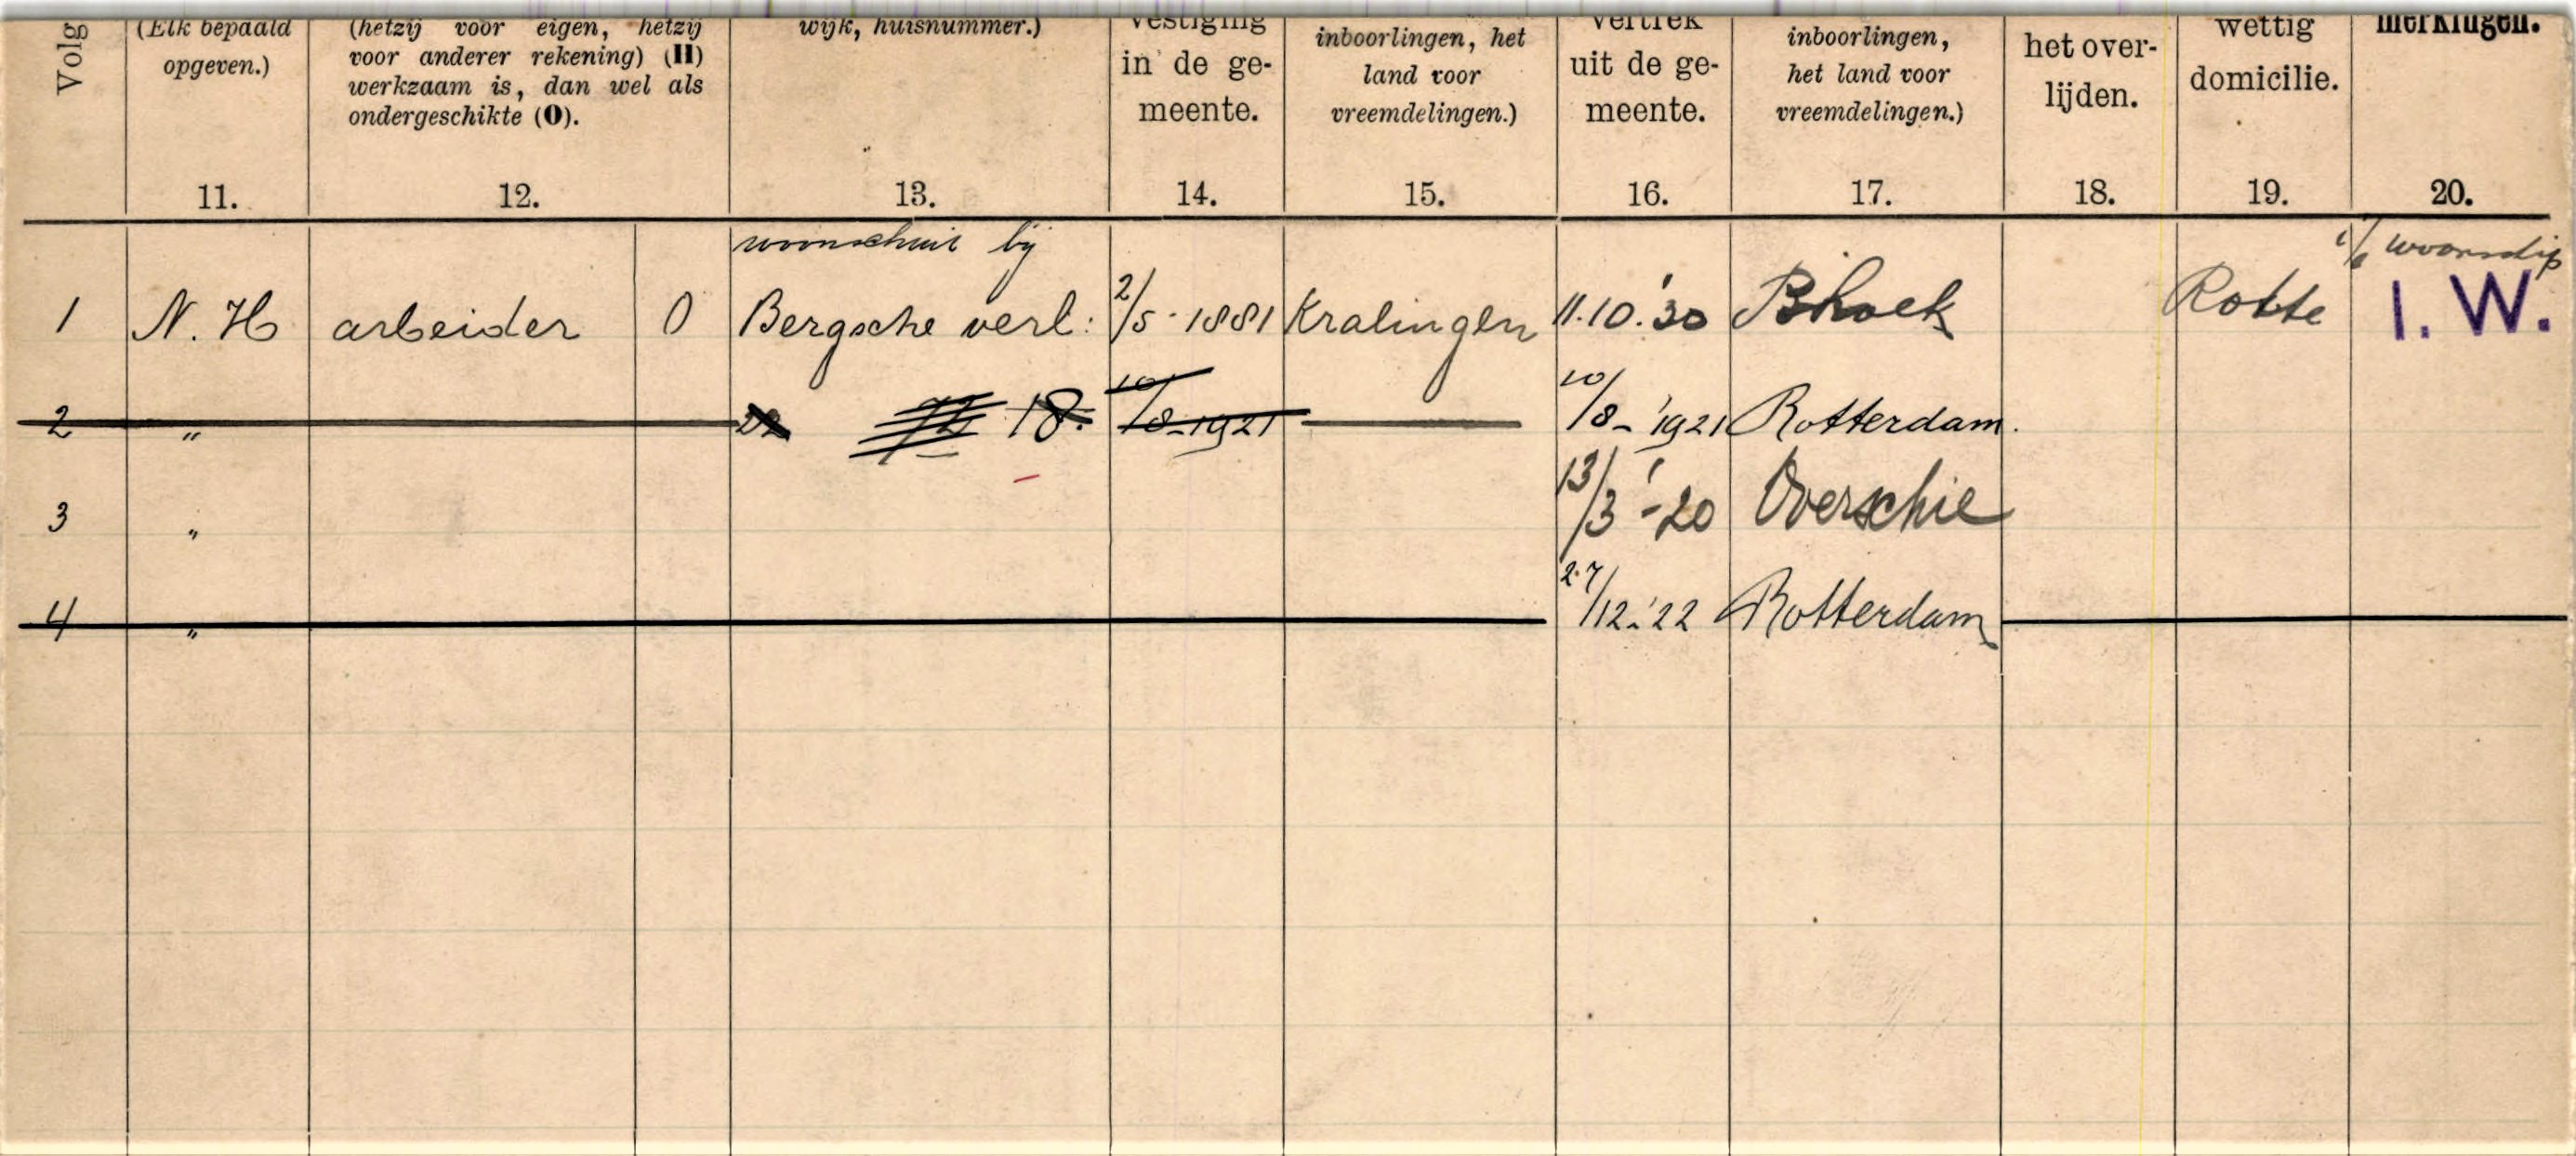 Volg
(Elk bepaald
opgeven.)
11.
(hetzij voor eigen, hetzij
voor anderer rekening) (H)
werkzaam is, dan wel als
ondergeschikte (O).
12.
wijk, huisnummer.)
13.
vestiging
in de ge-
meente.
14.
inboorlingen, het
land voor
vreemdelingen.)
15.
vertrek
uit de ge-
meente.
16.
inboorlingen,
het land voor
vreemdelingen.)
17.
het over-
lijden.
18.
wettig
domicilie.
19.
merkingen.
20.
woonschuit bij
woonschip
1 N. H arbeider O Bergsche verl: 2/5-1881 Kralingen 11.10.'30 Bhoek Rotte I. W.
2 " 18. 10/8-1921 10/8-'1921 Rotterdam.
3 " 13/3-'20 Overschie
4 " 27/12-'22 Rotterdam